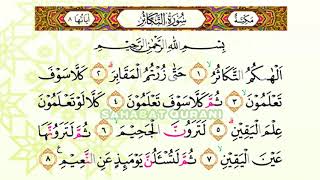 مَكِّيَّة سُورَةُ التَّكَاثُرِ اٰيَاتُهَا ٨
بِسْمِ اللّٰهِ الرَّحْمٰنِ الرَّحِيْمِ
اَلْهٰىكُمُ التَّكَاثُرُ ١ حَتّٰى زُرْتُمُ الْمَقَابِرَ ٢ كَلَّا سَوْفَ
تَعْلَمُوْنَ ٣ ثُمَّ كَلَّا سَوْفَ تَعْلَمُوْنَ ٤ كَلَّا لَوْ تَعْلَمُوْنَ
SAHABAT QURANI
عِلْمَ الْيَقِيْنِ ٥ لَتَرَوُنَّ الْجَحِيْمَ ٦ ثُمَّ لَتَرَوُنَّهَا
عَيْنَ الْيَقِيْنِ ٧ ثُمَّ لَتُسْـَٔلُنَّ يَوْمَىِٕذٍ عَنِ النَّعِيْمِ ٨